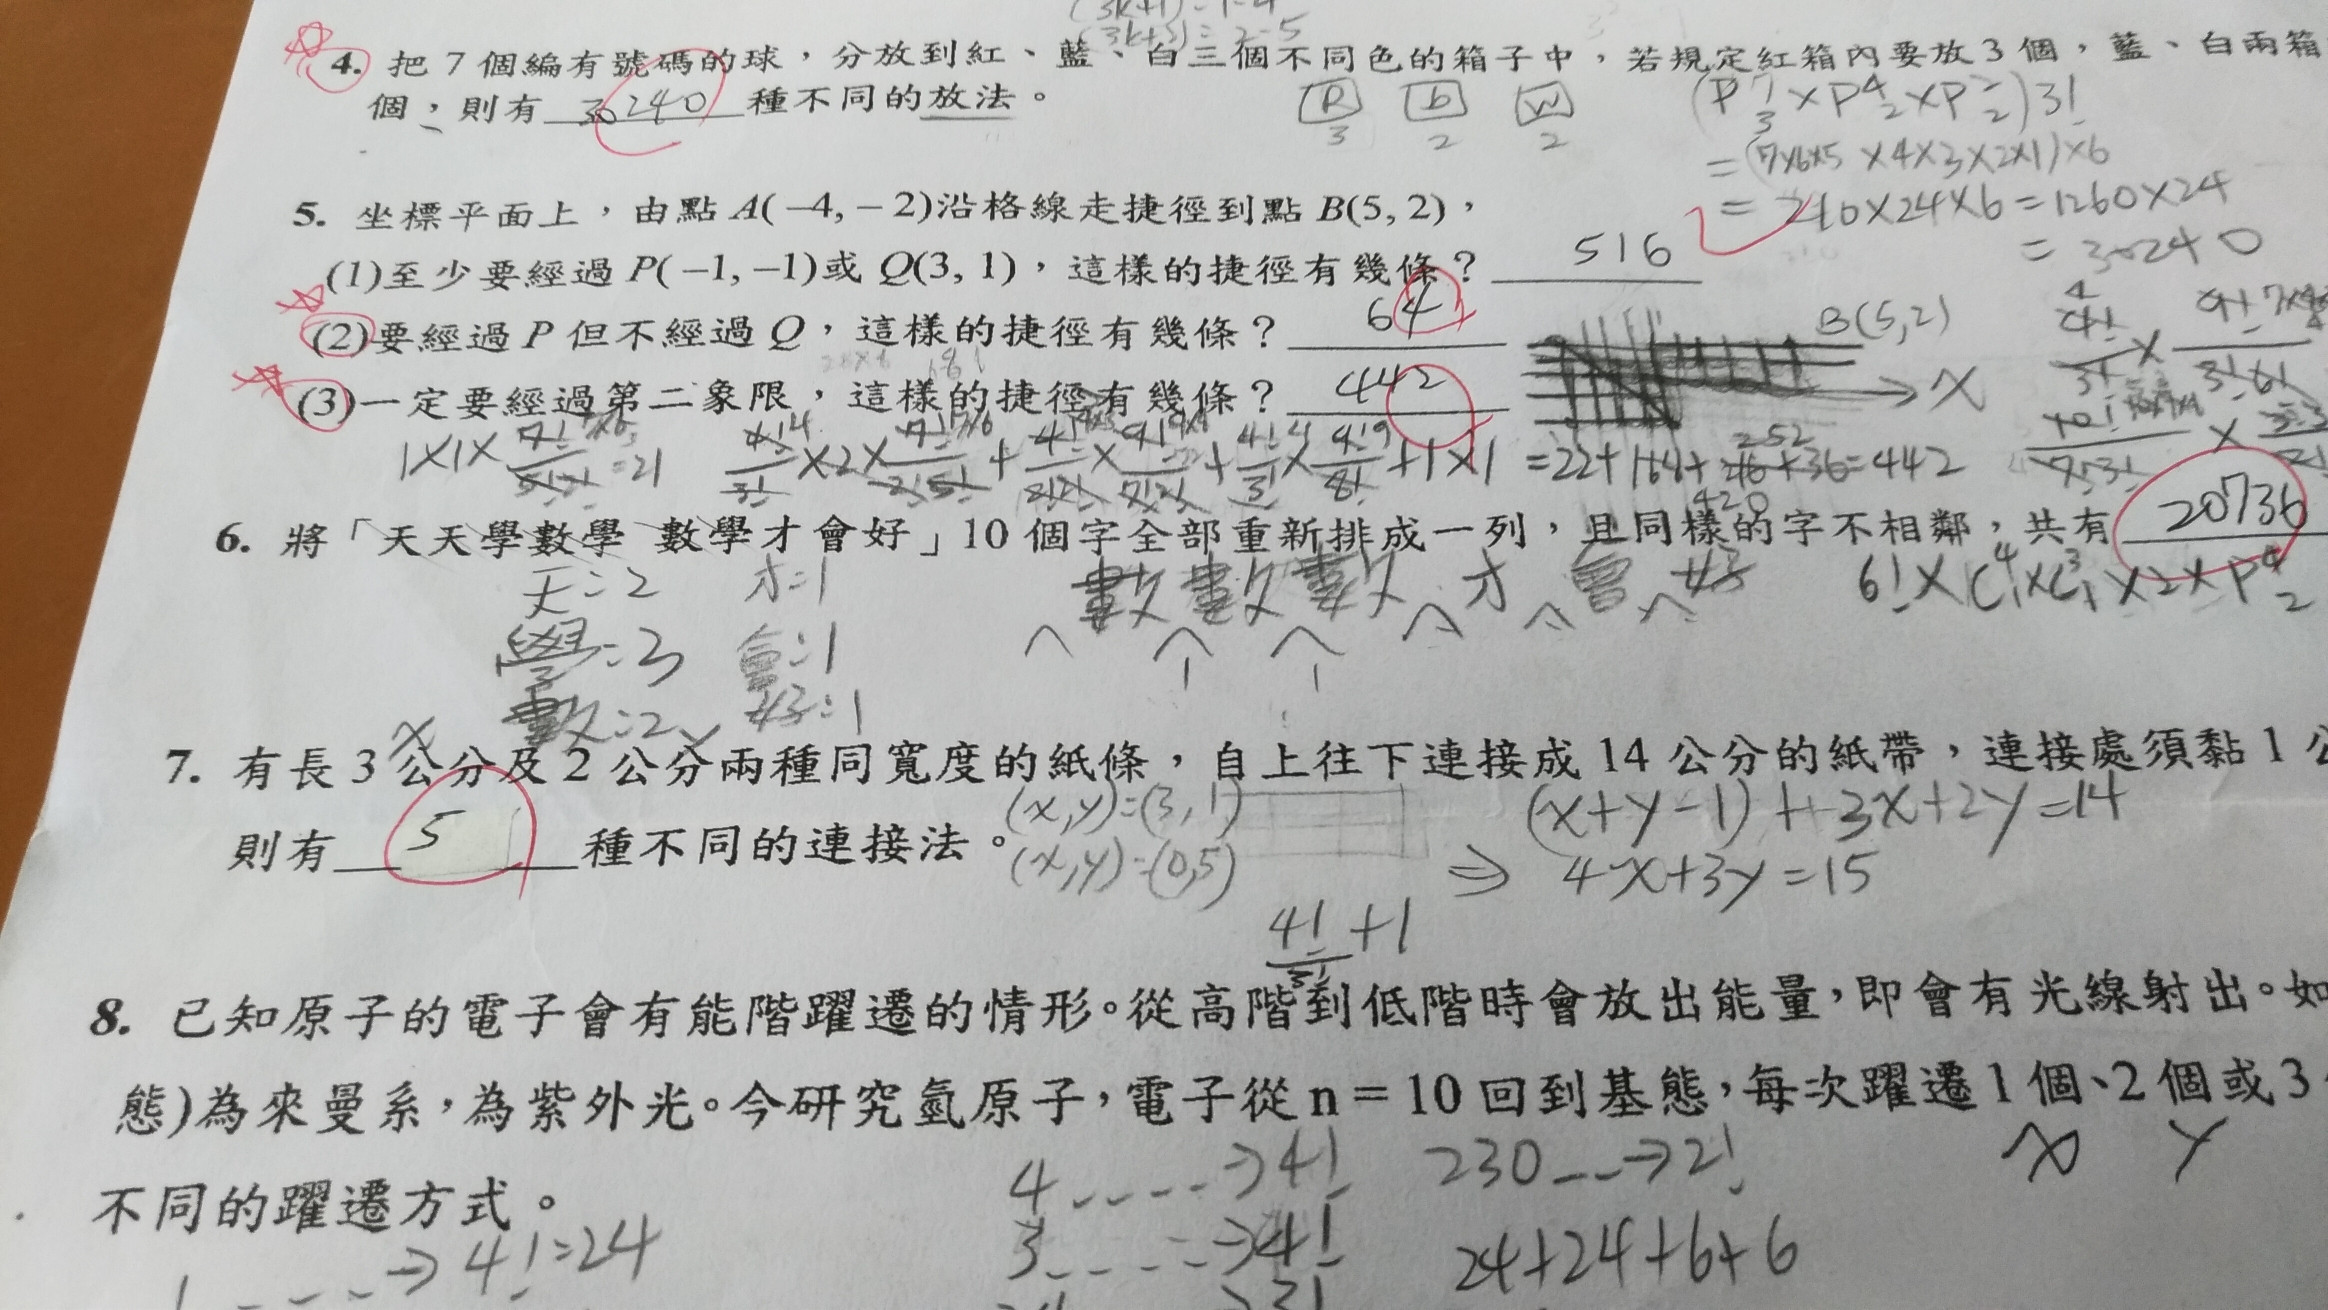 (3k+1)=1-4
(3k+3)=2-5
4. 把 7 個編有號碼的球，分放到紅、藍、白三個不同色的箱子中，若規定紅箱內要放 3 個，藍、白兩箱
個，則有 30240 種不同的放法。
R b W
3 2 2
(P 7 3 ×P 4 2 ×P 2 2)3!
=(7×6×5 ×4×3×2×1)×6
=210×24×6=1260×24
=30240
5. 坐標平面上，由點 A(–4, – 2)沿格線走捷徑到點 B(5, 2)，
(1)至少要經過 P( –1, –1)或 Q(3, 1)，這樣的捷徑有幾條？ 516
(2)要經過 P 但不經過 Q，這樣的捷徑有幾條？ 64
B(5,2)
X
(3)一定要經過第二象限，這樣的捷徑有幾條？ 442
=442
6. 將「天天學數學 數學才會好」10 個字全部重新排成一列，且同樣的字不相鄰，共有 20736
天=2 才=1
學=3 會=1
數=2 好=1
數 數 數 才 會 好
6!×C 4 1 ×C 3 1 ×2×P 4 2
7. 有長 3 公分及 2 公分兩種同寬度的紙條，自上往下連接成 14 公分的紙帶，連接處須黏 1 公
x y
則有 5 種不同的連接法。
(x,y)=(3,1)
(x,y)=(0,5)
(x+y-1)+3x+2y=14
⇒ 4x+3y=15
4!/3! +1
8. 已知原子的電子會有能階躍遷的情形。從高階到低階時會放出能量，即會有光線射出。如
態)為來曼系，為紫外光。今研究氫原子，電子從 n = 10 回到基態，每次躍遷 1 個、2 個或 3
x y
不同的躍遷方式。
4----→4! 230--→2!
3----→4! 24+24+6+6
1 ---→4!=24